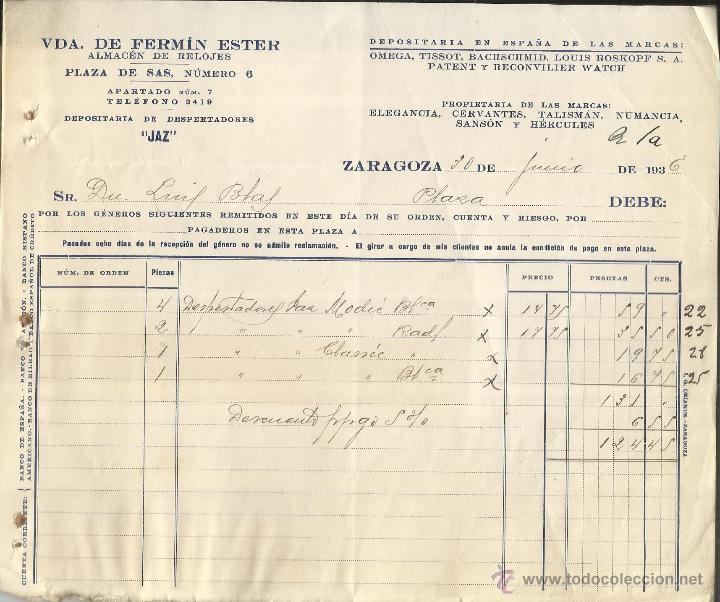 VDA. DE FERMÍN ESTER
ALMACÉN DE RELOJES
PLAZA DE SAS, NÚMERO 6
APARTADO NÚM. 7
TELÉFONO 2419
DEPOSITARIA DE DESPERTADORES
"JAZ"
DEPOSITARIA EN ESPAÑA DE LAS MARCAS:
OMEGA, TISSOT, BACHSCHMID, LOUIS ROSKOPF S. A.
PATENT Y RECONVILIER WATCH
PROPIETARIA DE LAS MARCAS:
ELEGANCIA, CERVANTES, TALISMÁN, NUMANCIA,
SANSÓN Y HÉRCULES
ZARAGOZA 30 DE Junio DE 1936
SR. Dn Luis Blas Plaza DEBE:
POR LOS GÉNEROS SIGUIENTES REMITIDOS EN ESTE DÍA DE SU ORDEN, CUENTA Y RIESGO, POR
PAGADEROS EN ESTA PLAZA A
Pasados ocho días de la recepción del género no se admite reclamación. - El girar a cargo de mis clientes no anula la condición de pago en esta plaza.
NÚM. DE ORDEN Piezas PRECIO PESETAS CTS.
4 Despertadores Jaz Modic Blca x 14 75 59 " 22
2 " " " Rad x 17 75 35 50 25
1 " " Classic " x 19 75 28
1 " " " Blca x 16 75 25
131 "
Descuento p/pgo 5 % 6 55
124 45
CUENTA CORRIENTE: BANCO DE ESPAÑA. - BANCO DE ARAGÓN. - BANCO HISPANO
AMERICANO.-BANCO DE BILBAO.-BANCO ESPAÑOL DE CRÉDITO
www.todocoleccion.net